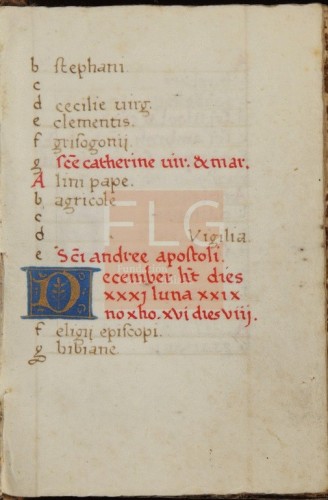 b stephani
c
d cecilie virg.
e clementis.
f grisogonii
g Sc̄e catherine uir. & mar.
A lini pape.
b agricole
c
d Vigilia
e Sc̄i andree apostoli.
December h̄t dies
xxxj luna xxix
nox ho. xvi dies viij.
f eligij episcopi.
g bibiane
FLG